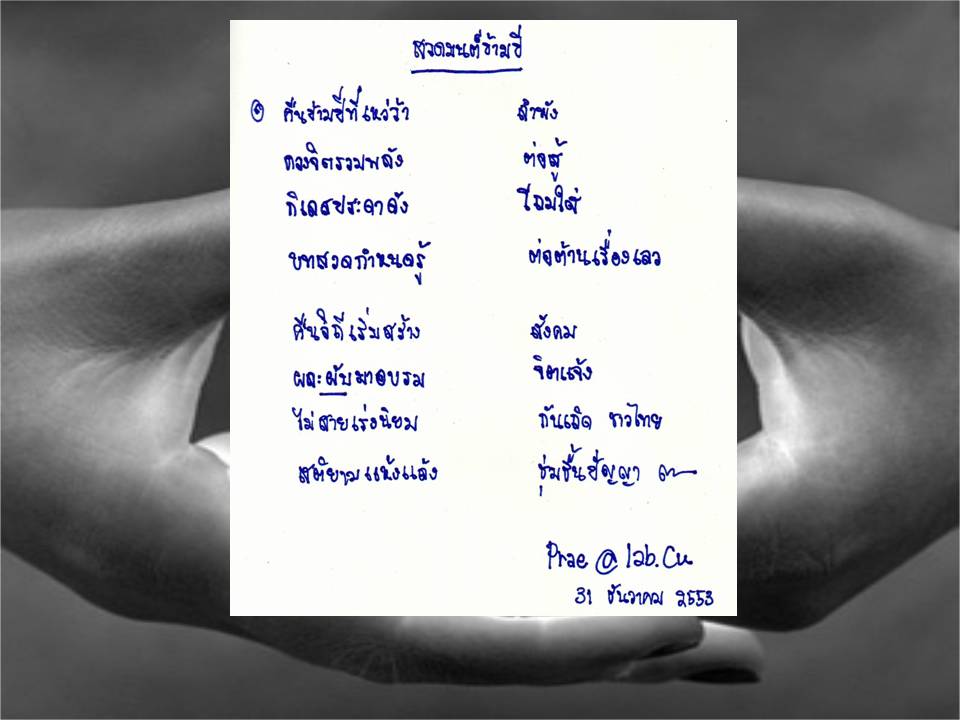 สวดมนต์ข้ามปี
๏ คืนข้ามปีที่เหว่ว้า ลำพัง
ดวงจิตรวมพลัง ต่อสู้
กิเลสประดาดัง โถมใส่
บทสวดกำหนดรู้ ต่อต้านเรื่องเลว
คืนวิถีเริ่มสร้าง สังคม
ผละผับมาอบรม จิตแจ้ง
ไม่สายเร่งนิยม กันเถิด ชาวไทย
สติยามแห้งแล้ง ชุ่มชื้นปัญญา ๛
Prae @ lab.Cu
31 ธันวาคม 2553